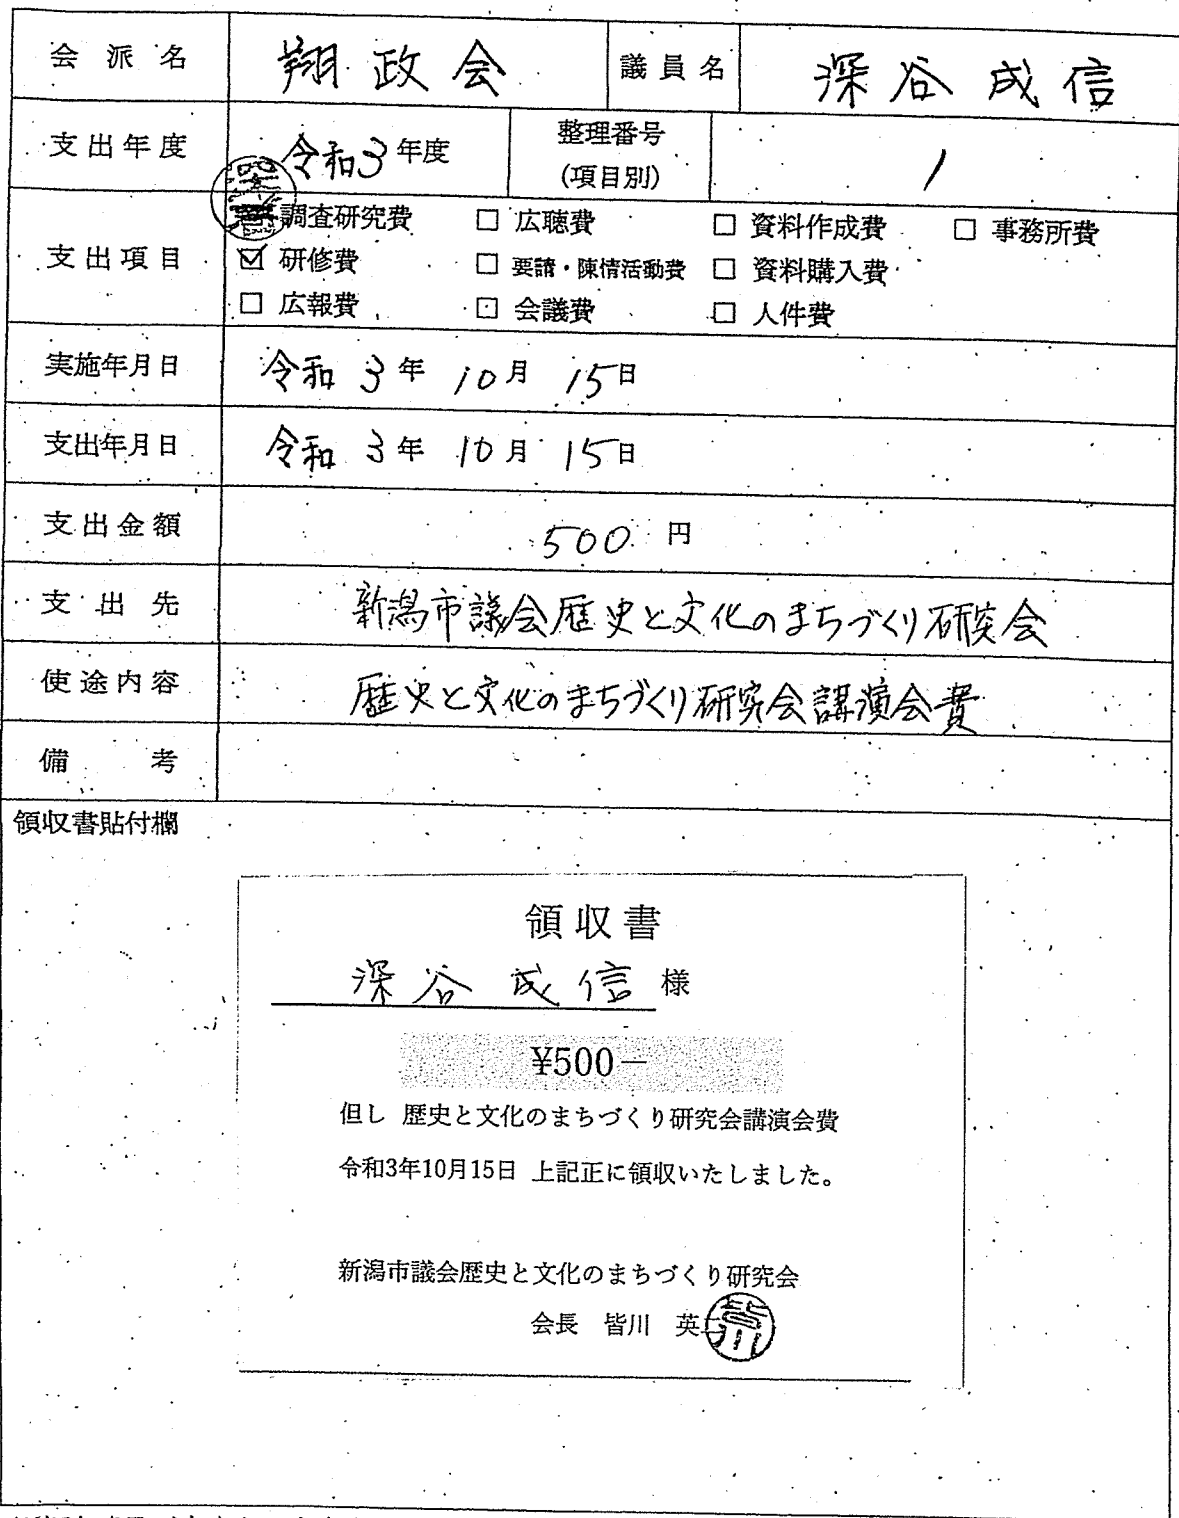 会派名 翔政会 議員名 深谷成信
支出年度 令和3年度 整理番号(項目別) 1
支出項目
調査研究費 □ 広聴費 □ 資料作成費 □ 事務所費
☑ 研修費 □ 要請・陳情活動費 □ 資料購入費
□ 広報費 □ 会議費 □ 人件費
実施年月日 令和3年10月15日
支出年月日 令和3年10月15日
支出金額 500円
支出先 新潟市議会歴史と文化のまちづくり研究会
使途内容 歴史と文化のまちづくり研究会講演会費
備考
領収書貼付欄
領収書
深谷成信様
¥500−
但し 歴史と文化のまちづくり研究会講演会費
令和3年10月15日 上記正に領収いたしました。
新潟市議会歴史と文化のまちづくり研究会
会長 皆川 英二
皆川